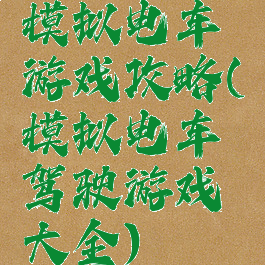 模拟电车
游戏攻略(
模拟电车
驾驶游戏
大全)